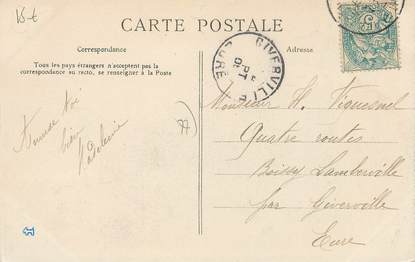 15-t
CARTE POSTALE
Correspondance
Adresse
Tous les pays étrangers n'acceptent pas la
correspondance au recto, se renseigner à la Poste
GIVERVILLE
EURE
Monsieur H. Viquesnel
Quatre routes
Boissy Lamberville
par Giverville
Eure
bien
Madeleine
77